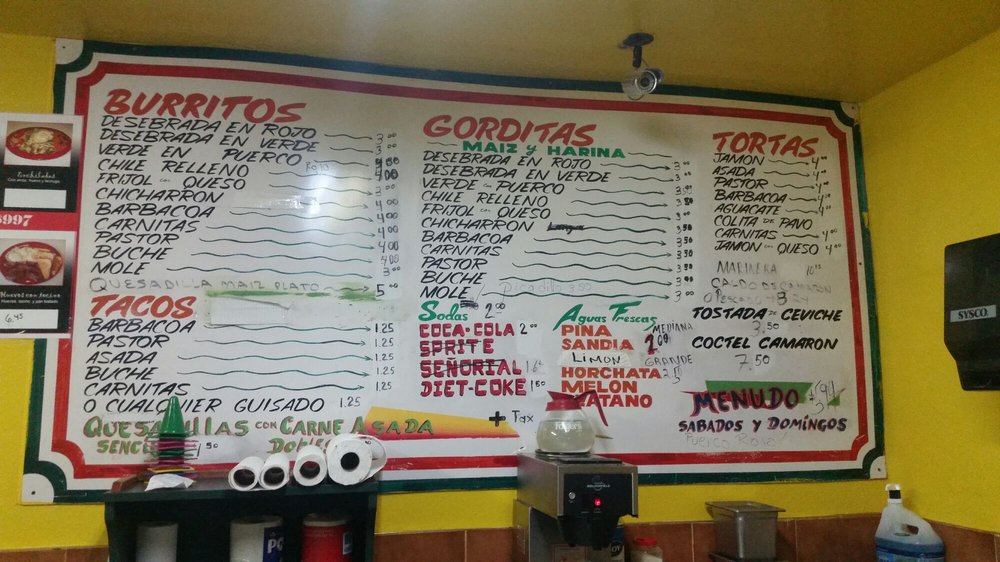 BURRITOS
DESEBRADA EN ROJO 3.00
DESEBRADA EN VERDE 3.00
VERDE EN PUERCO Rojo
CHILE RELLENO
FRIJOL CON QUESO
CHICHARRON
BARBACOA 4.00
CARNITAS 4.00
PASTOR 4.00
BUCHE 4.00
MOLE 3.00
QUESADILLA MAIZ PLATO 5.00
TACOS
BARBACOA 1.25
PASTOR 1.25
ASADA 1.25
BUCHE 1.25
CARNITAS 1.25
O CUALQUIER GUISADO 1.25
QUESADILLAS CON CARNE ASADA
50
GORDITAS
MAIZ Y HARINA
DESEBRADA EN ROJO 3.00
DESEBRADA EN VERDE 3.00
VERDE CON PUERCO
CHILE RELLENO 3.50
FRIJOL CON QUESO
CHICHARRON 3.50
BARBACOA 3.50
CARNITAS 3.50
PASTOR 3.50
BUCHE 3.50
MOLE 3.00
Sodas 2.00
COCA-COLA 2.00
SPRITE
SEÑORIAL
DIET-COKE 1.50
+ Tax
Aguas Frescas
PINA MEDIANA
SANDIA 2.00
LIMON GRANDE
HORCHATA
MELON
PLATANO
TORTAS
JAMON 4.00
ASADA 4.00
PASTOR 4.00
BARBACOA 4.00
AGUACATE 4.00
COLITA DE PAVO
CARNITAS 4.00
JAMON CON QUESO 4.00
MARINERA
CALDO DE CAMARON
TOSTADA DE CEVICHE
3.50
COCTEL CAMARON
7.50
MENUDO
SABADOS Y DOMINGOS
Puerco Rojo
Enchiladas
Huevos con tocino
6.45
SYSCO